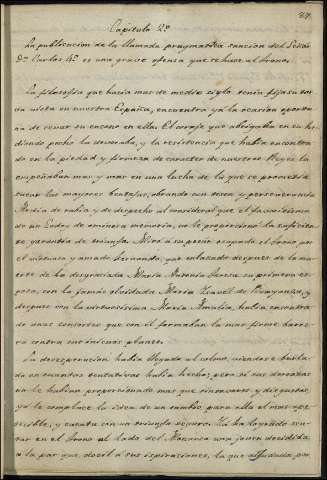 Capitulo 2º
La publicacion de la llamada pragmatica sancion del Señor
Dn. Carlos 4º es una grave ofensa que se hace al trono.
La filosofia que hacia mas de medio siglo tenia fija su tor-
va vista en nuestra España, encuentra ya la ocasion oportu-
na de cevar su encono en ella. El corage que abrigaba en su he-
diondo pecho la devoraba, y la resistencia que habia encontra-
do en la piedad y firmeza de caracter de nuestros Reyes la
empeñaban mas y mas en una lucha de la que se prometia
sacar las mayores ventajas, obrando con teson y perseverancia
Ardia de rabia y de despecho al considerar que el favoritismo
de un Godoy de ominosa memoria, no le proporcionó la suficien-
te garantia de triunfo. Miró a su pesar ocupado el trono por
el virtuoso y amado Fernando, que enlazado despues de la mu-
erte de la desgraciada Maria Antonia Teresa su primera es-
posa, con la jamás olvidada Maria Isavel de Braganza, y
despues con la virtuosisima Maria Amalia, habia encontra-
do unas consortes que con él formaban la mas firme barre-
ra contra sus inicuos planes.
La desesperacion habia llegado al colmo, viendose burla-
da en cuantas tentativas habia hecho; pero si sus derrotas
no le habian proporcionado mas que sinsavores y disgustos,
ya le complace la idea de un cambio para ella el mas apete-
cible, y cuenta con un triunfo seguro. Ya ha logrado sen-
tar en el trono al lado del Monarca una joven decidida,
a la par que docil á sus ispiraciones, la que por